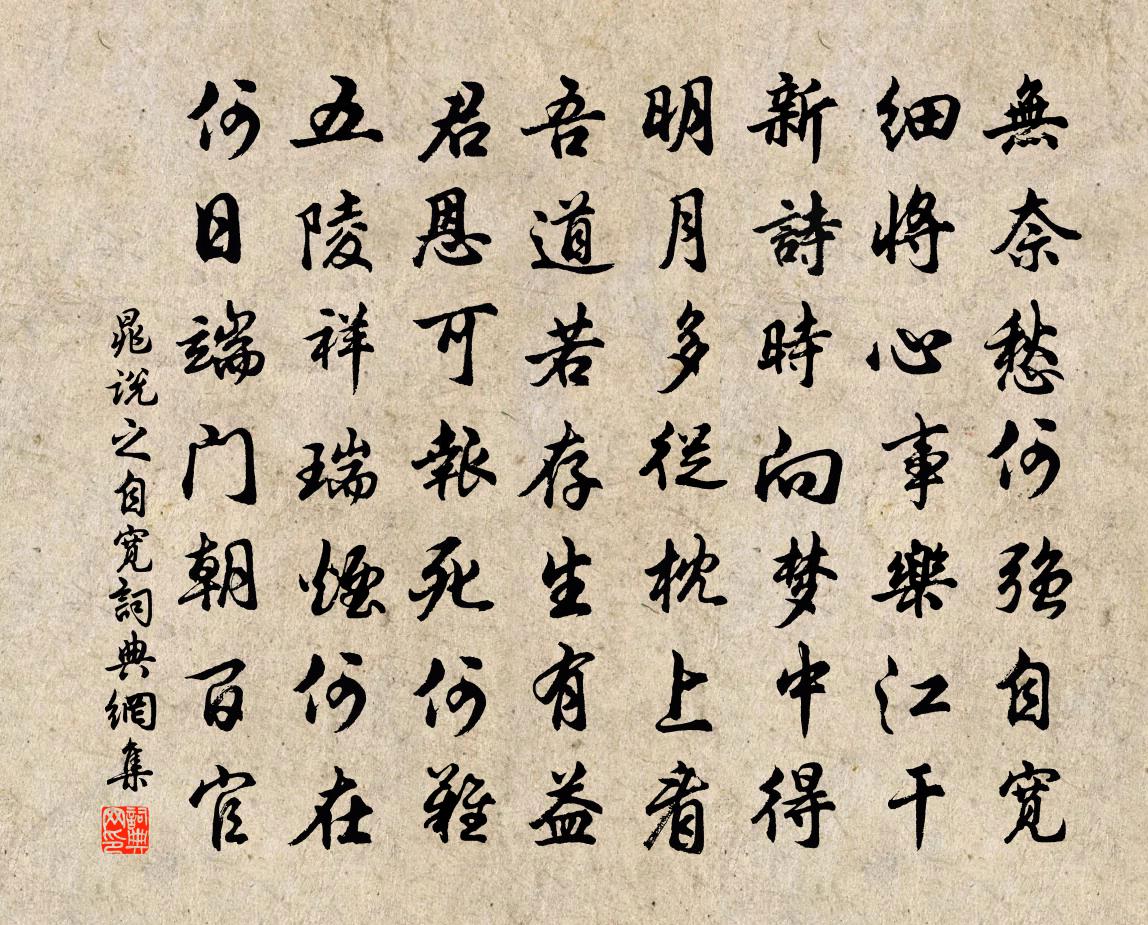 無奈愁何強自寬
細將心事樂江干
新詩時向梦中得
明月多從枕上看
吾道若存生有益
君恩可報死何難
五陵祥瑞煙何在
何日端门朝百官
晁說之自寬詞典網集
詞典網印